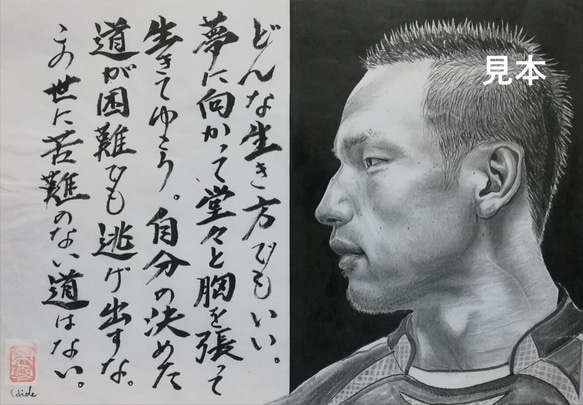 どんな生き方でもいい。
夢に向かって堂々と胸を張って
生きてゆこう。自分の決めた
道が困難でも逃げ出すな。
この世に苦難のない道はない。
見本